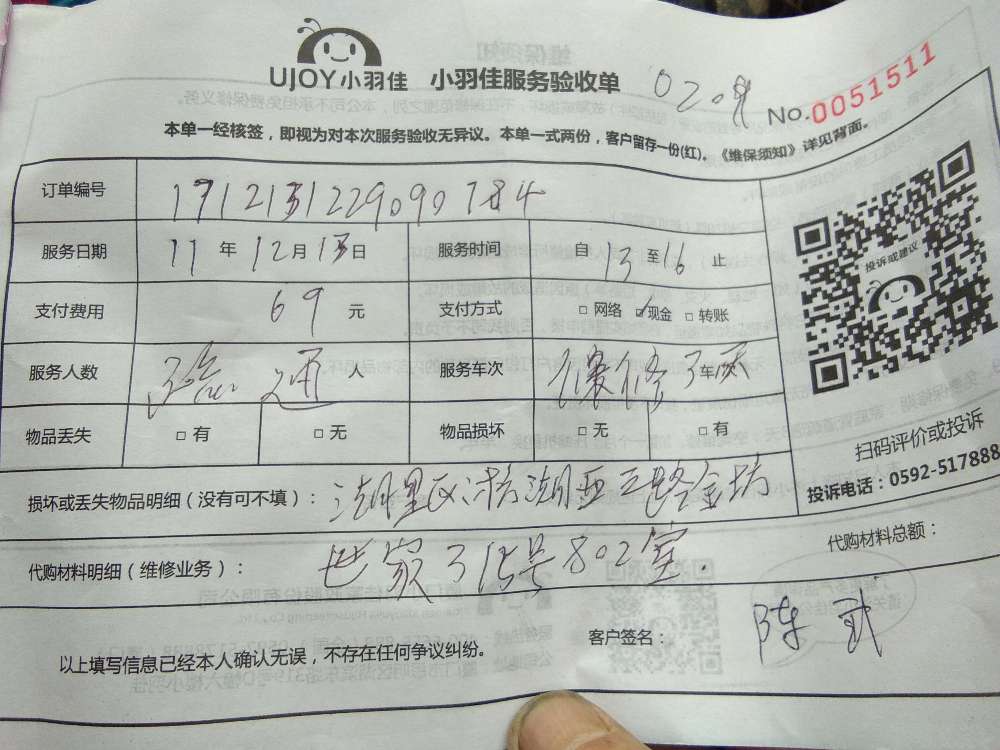 UJOY小羽佳 小羽佳服务验收单
No.0051511
本单一经核签，即视为对本次服务验收无异议。本单一式两份，客户留存一份(红)。《维保须知》详见背面。
订单编号 1712131229090784
服务日期 17 年 12 月 13 日 服务时间 自 13 至 16 止
支付费用 69 元 支付方式 □ 网络 ☑现金 □ 转账
服务人数 通 人 服务车次 维修 车
物品丢失 □ 有 □ 无 物品损坏 □ 无 □ 有
损坏或丢失物品明细（没有可不填）： 湖里区 湖 路金坊
代购材料明细（维修业务）： 世家315号802室. 代购材料总额：
以上填写信息已经本人确认无误，不存在任何争议纠纷。
客户签名： 陈
投诉或建议
扫码评价或投诉
投诉电话：0592-517888